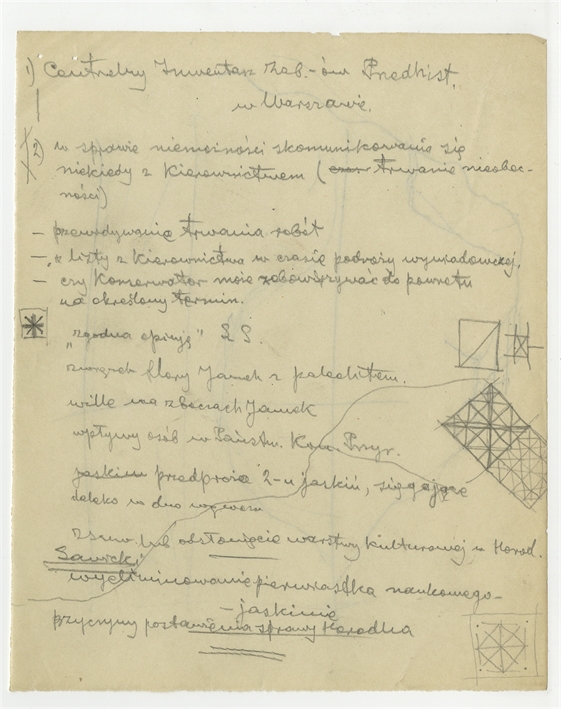 1) Centralny Inwentarz Zab.-ów Predhist.
w Warszawie.
2) w sprawie niemożności skomunikowania się
niekiedy z Kierownictwem ( trwanie nieobec-
ności)
– przewidywania trwania robót
– listy z Kierownictwa w czasie podróży wywiadowczej.
– czy Konserwator może zobowiązywać do powrotu
na określony termin.
„zgodna opinja” L S.
związek flory Jamek z paleolitem.
wille na zboczach Jamek
wpływy osób w Państw. Kom. Przyr.
jaskinia przedproża 2-u jaskiń, sięgające
daleko w dno wąwozu
zsuw. lub odsłonięcie warstwy kulturowej w Horod.
Sawicki
wyeliminowanie pierwiastka naukowego–
– jaskinie
przyczyny postawienia sprawy Horodka